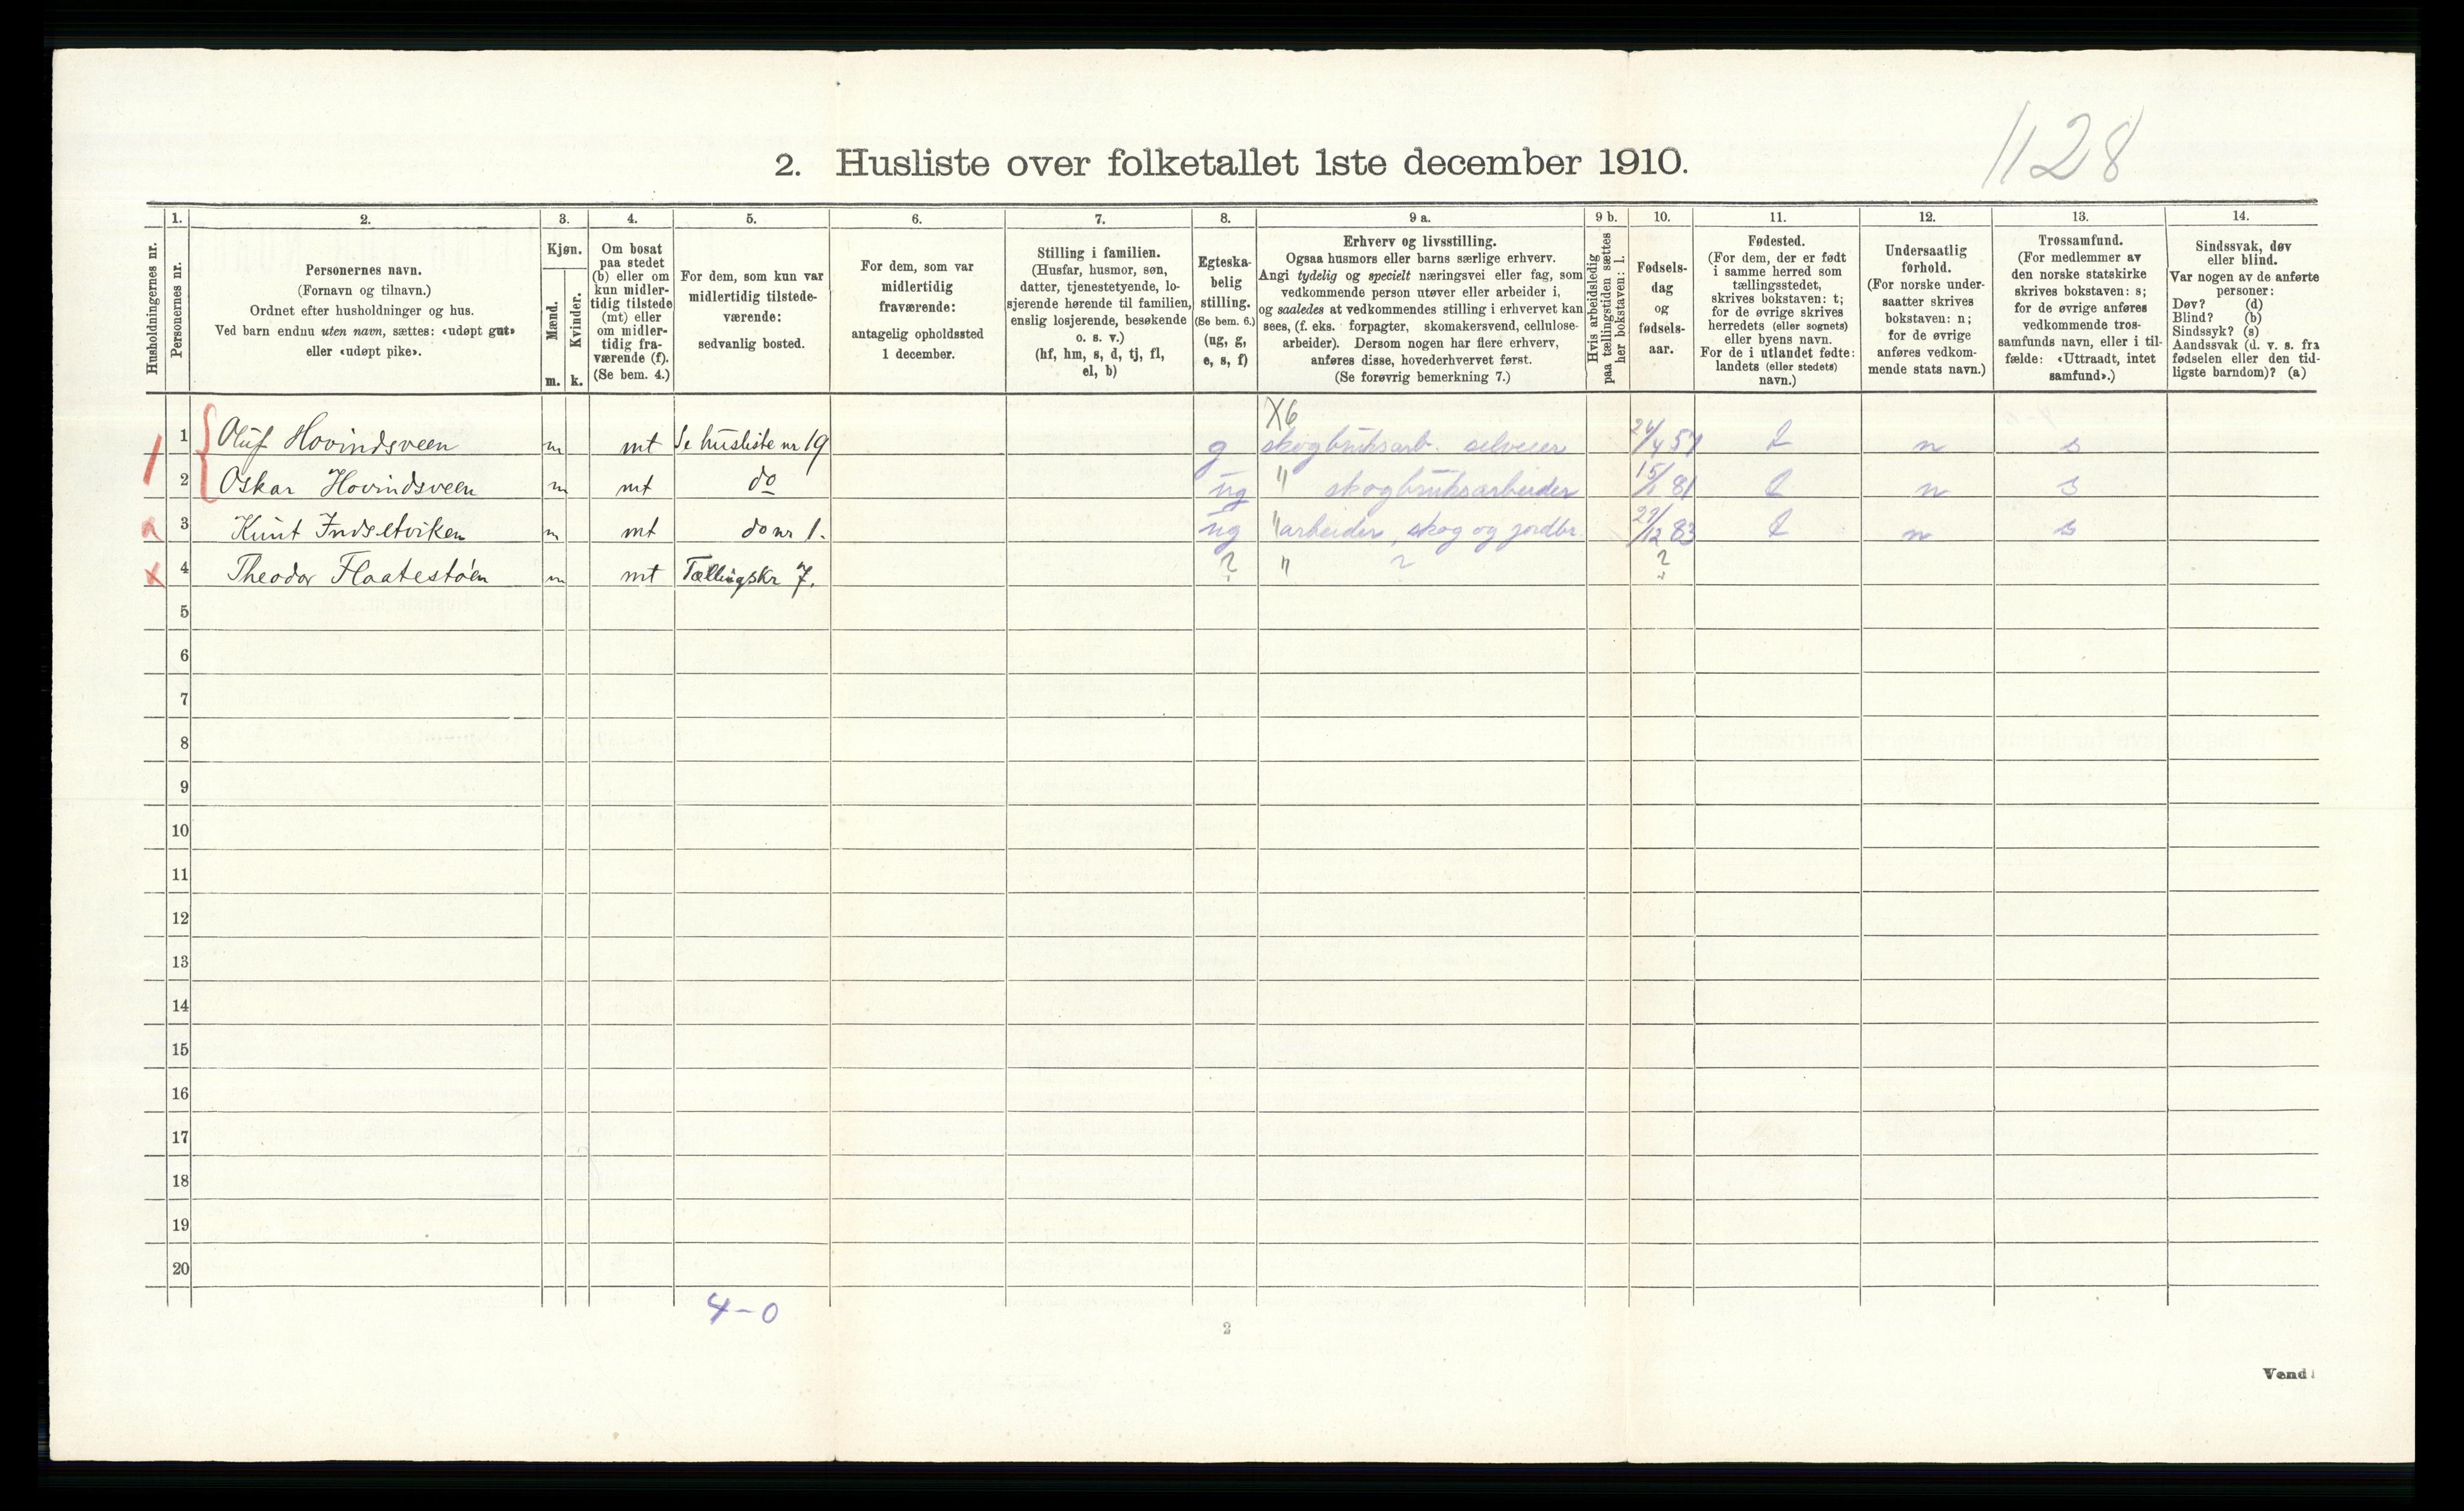 1128
2. Husliste over folketallet 1ste december 1910.
Husholdningernes nr.
1.
Personernes nr.
2.
Personernes navn.
(Fornavn og tilnavn.)
Ordnet efter husholdninger og hus.
Ved barn endnu uten navn, sættes: «udøpt gut»
eller «udøpt pike».
3.
Kjøn.
Mænd.
m.
Kvinder.
k.
4.
Om bosat
paa stedet
(b) eller om
kun midler-
tidig tilstede
(mt) eller
om midler-
tidig fra-
værende (f).
(Se bem. 4.)
5.
For dem, som kun var
midlertidig tilstede-
værende:
sedvanlig bosted.
6.
For dem, som var
midlertidig
fraværende:
antagelig opholdssted
1 december.
7.
Stilling i familien.
(Husfar, husmor, søn,
datter, tjenestetyende, lo-
sjerende hørende til familien,
enslig losjerende, besøkende
o. s. v.)
(hf, hm, s, d, tj, fl,
el, b)
8.
Egteska-
belig
stilling.
(Se bem. 6.)
(ug, g,
e, s, f)
9 a.
Erhverv og livsstilling.
Ogsaa husmors eller barns særlige erhverv.
Angi tydelig og specielt næringsvei eller fag, som
vedkommende person utøver eller arbeider i,
og saaledes at vedkommendes stilling i erhvervet kan
sees, (f. eks. forpagter, skomakersvend, cellulose-
arbeider). Dersom nogen har flere erhverv,
anføres disse, hovederhvervet først.
(Se forøvrig bemerkning 7.)
9 b.
Hvis arbeidsledig
paa tællingstiden sættes
her bokstaven: l.
10.
Fødsels-
dag
og
fødsels-
aar.
11.
Fødested.
(For dem, der er født
i samme herred som
tællingsstedet,
skrives bokstaven: t;
for de øvrige skrives
herredets (eller sognets)
eller byens navn.
For de i utlandet fødte:
landets (eller stedets)
navn.)
12.
Undersaatlig
forhold.
(For norske under-
saatter skrives
bokstaven: n;
for de øvrige
anføres vedkom-
mende stats navn.)
13.
Trossamfund.
(For medlemmer av
den norske statskirke
skrives bokstaven: s;
for de øvrige anføres
vedkommende tros-
samfunds navn, eller i til-
fælde: «Uttraadt, intet
samfund».)
14.
Sindssvak, døv
eller blind.
Var nogen av de anførte
personer:
Døv? (d)
Blind? (b)
Sindssyk? (s)
Aandssvak (d. v. s. fra
fødselen eller den tid-
ligste barndom)? (a)
X6
1 1 Oluf Hovindsveen m mt Se husliste nr 19 g skogbruksarb. selveier 26/4 57 t n s
2 Oskar Hovindsveen m mt do ug " skogbruksarbeider 15/1 81 t n s
3 Knut Indsetviken m mt do nr 1. ug " arbeider, skog og jordbr. 27/12 83 t n s
x 4 Theodor Flaatestøen m mt Tællingskr 7. ? " ? ?
5
6
7
8
9
10
11
12
13
14
15
16
17
18
19
20
4-0
2
Vend!